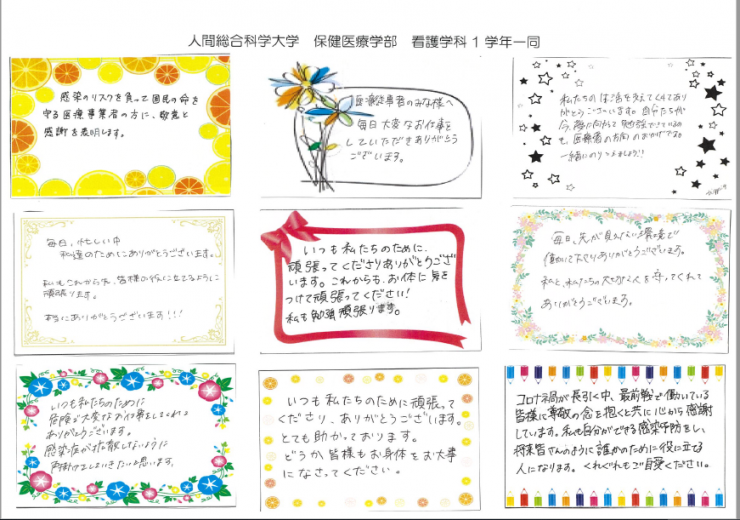 人間総合科学大学　保健医療学部　看護学科１学年一同
感染のリスクを負って国民の命を
守る医療事業者の方に、敬意と
感謝を表明します。
医療従事者のみな様へ
毎日大変なお仕事を
していただきありがとう
ございます。
私たちの生活を支えてくれてあり
がとうございます。自分たちが
今、
も、医療者の方々のおかげである。
一緒にのりこえましょう!!
毎日、忙しい中
私達のためにありがとうございます。
私もこれから先、皆様の役に立てるように
頑張ります。
本当にありがとうございます!!!
いつも私たちのために、
頑張ってくださりありがとうござ
います。これからも、お体に気を
つけて頑張ってください!
私も勉強頑張ります。
毎日、先が見えない環境で
働いて下さりありがとうございます。
私と、私たちの大切な人を守ってくれて
ありがとうございます。
いつも私たちのために
危険で大変なお仕事をしてくれて
ありがとうございます。
感染症が拡散しないように
心掛けていきたいと思います。
いつも私たちのために頑張って
くださり、ありがとうございます。
とても助かっております。
どうか、皆様もお身体をお大事
になさってください。
コロナ禍が長引く中、最前線で働いている
皆様に尊敬の念を抱くと共に心から感謝
しています。私も自分ができる感染予防をし、
将来皆さんのように誰かのために役に立てる
人になります。くれぐれもご自愛ください。